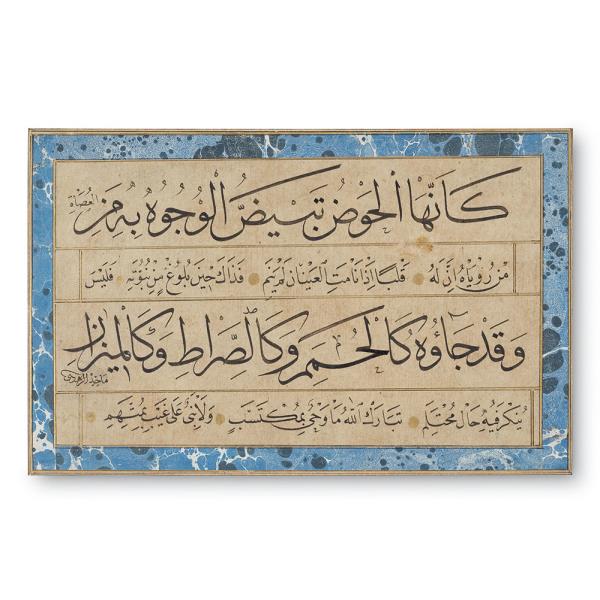 كَأَنَّهَا الْحَوْضُ تَبْيَضُّ الْوُجُوهُ بِهِ مِنَ الْعُصَاةِ
مِنْ رُؤْيَاهُ إِنَّ لَهُ قَلْبًا إِذَا نَامَتِ الْعَيْنَانِ لَمْ يَنَمِ فَذَاكَ حِينَ بُلُوغٍ مِنْ نُبُوَّتِهِ فَلَيْسَ
وَقَدْ جَاؤُهُ كَالْحُمَمِ وَكَالصِّرَاطِ وَكَالْمِيزَانِ
ماجد الزهدي
يُنْكَرُ فِيهِ حَالُ مُحْتَلِمِ تَبَارَكَ اللهُ مَا وَحْيٌ بِمُكْتَسَبٍ وَلَا نَبِيٌّ عَلَى غَيْبٍ بِمُتَّهَمِ